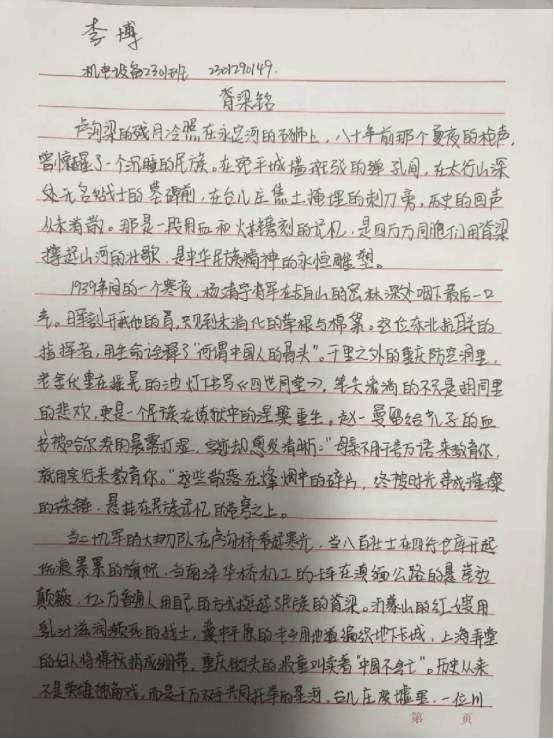 李博
机电设备2301班 2301290149.
脊梁铭
卢沟梁的残月冷照在永定河的石狮上，八十年前那个夏夜的枪声，
曾惊醒了一个沉睡的民族。在宛平城墙斑驳的弹孔间，在太行山深
处无名战士的墓碑前，在台儿庄焦土掩埋的刺刀旁，历史的回声
从未消散。那是一段用血和火镌刻的记忆，是四万万同胞们用脊梁
撑起山河的壮歌，是中华民族精神的永恒雕塑。
1939年间的一个寒夜，杨靖宇将军在长白山的密林深处咽下最后一口
气。日军剖开他的胃，只见到未消化的草根与棉絮。这位东北抗联的
指挥者，用生命诠释了"何谓中国人的骨头"。千里之外的重庆防空洞里，
老舍伏案在摇晃的油灯下书写《四世同堂》，笔尖流淌的不只是胡同里
的悲欢，更是一个民族在炼狱中的涅槃重生。赵一曼留给儿子的血
书被哈尔滨的晨雾打湿，字迹却愈发清晰："母亲不用千言万语来教育你，
就用实行来教育你。"这些散落在烽烟中的碎片，终被时光串成璀璨
的珠链，悬挂在民族记忆的苍穹之上。
当二十九军的大刀队在卢沟桥卷起寒光，当八百壮士在四行仓库升起
伤痕累累的旗帜，当南洋华侨机工的卡车在滇缅公路的悬崖边
颠簸，亿万普通人用自己的方式挺起了民族的脊梁。沂蒙山的红嫂用
乳汁滋润濒死的战士，冀中平原的老乡用地道编织地下长城，上海弄堂
的妇人将棉被拆成绷带，重庆街头的报童叫卖着"中国不会亡"。历史从来
不是英雄独角戏，而是千万双手共同托举的星河。台儿庄废墟里，一位川
第 页